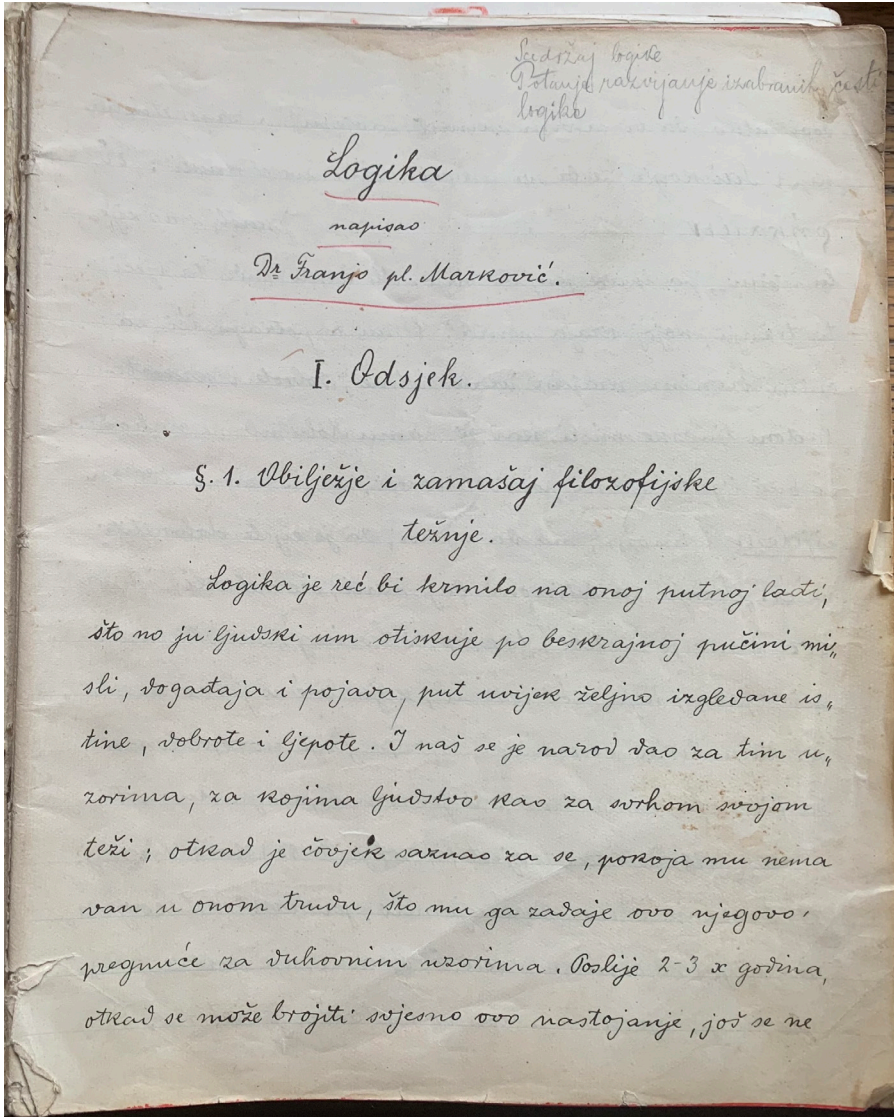 Sadržaj logike
Potanje razvijanje izabranih česti
logike
Logika
napisao
Dr Franjo pl. Marković.
I. Odsjek.
§. 1. Obilježje i zamašaj filozofijske
težnje.
Logika je reć bi krmilo na onoj putnoj lađi,
što no ju ljudski um otiskuje po beskrajnoj pučini mi„
sli, događaja i pojava, put uvijek željno izgledane is„
tine, dobrote i ljepote. I naš se je narod dao za tim u„
zorima, za kojima ljudstvo kao za svrhom svojom
teži; otkad je čovjek saznao za se, pokoja mu nema
van u onom trudu, što mu ga zadaje ovo njegovo
pregnuće za duhovnim uzorima. Poslije 2-3 x godina,
otkad se može brojiti svjesno ovo nastojanje, još se ne